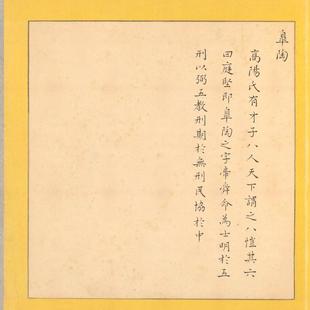 皐陶
高陽氏有才子八人天下謂之八愷其六
曰庭堅即皐陶之字帝舜命為士明於五
刑以弼五教刑期於無刑民協於中